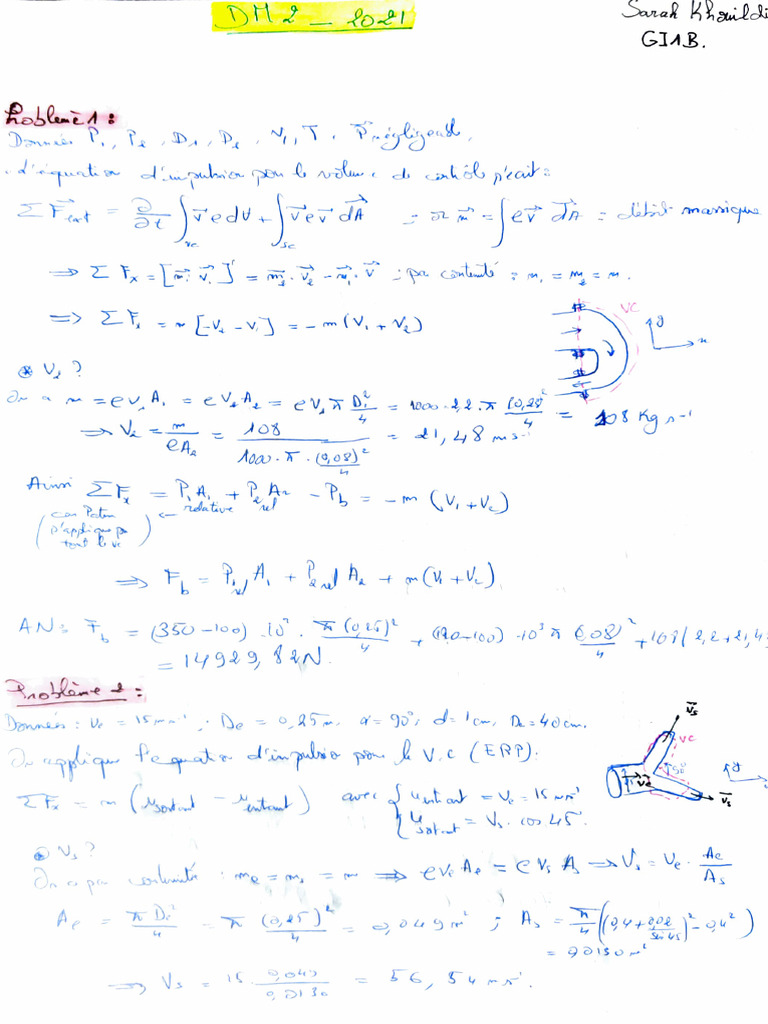 DM2 - 2021
Sarah Khouildi
GI1B.
Problème 1 :
Données P₁, P₂, D₁, D₂, V₁, T, P négligeable,
L'équation d'impulsion pour le volume de contrôle s'écrit :
Σ F⃗ext = ∂/∂t ∫vc v⃗ ρ dV + ∫sc v⃗ ρ v⃗ dA⃗ ; or m = ∫ ρ v⃗ dA⃗ = débit massique
⇒ Σ Fx = [m⃗ . v⃗] = m₂ . v⃗₂ - m₁ . v⃗ ; par continuité : m₁ = m₂ = m.
⇒ Σ Fx = m [-V₂ - V₁] = - m (V₁ + V₂)
VC
y
x
V₂ ?
On a m = ρ V₁ A₁ = ρ V₂ A₂ = ρ V₁ π D₁²/4 = 1000 . 2,2 . π (0,25)²/4 = 108 Kg s⁻¹
⇒ V₂ = m/ρA₂ = 108/(1000 . π . (0,08)²/4) = 21,48 m s⁻¹
Ainsi Σ Fx = P₁A₁ + P₂A₂ - Fb = - m (V₁ + V₂)
(car Patm s'applique sur tout le vc) ← relative rel
⇒ Fb = P₁rel A₁ + P₂rel A₂ + m (V₁ + V₂)
AN : Fb = (350 - 100) . 10³ . π (0,25)²/4 + (120 - 100) . 10³ π (0,08)²/4 + 108 (2,2 + 21,4
= 14929,82 N.
Problème 2 :
Données : Ve = 15 m s⁻¹ ; De = 0,25 m, α = 90°, d = 1 cm, D₂ = 40 cm.
On applique l'equation d'impulsion pour le V.C (ERP).
Σ Fx = m (u sortant - u entrant) avec { u entrant = Ve = 15 m s⁻¹
u sortant = Vs . cos 45°.
Vs
VC
90°
Ve
y
Vs
Vs ?
On a par continuité : me = ms = m ⇒ ρ Ve Ae = ρ Vs As ⇒ Vs = Ve . Ae/As
Ae = π De²/4 = π (0,25)²/4 = 0,049 m² ; As = π/4 ((0,4 + 0,02/sin 45)² - 0,4²)
= 0,0130 m²
⇒ Vs = 15 . 0,049/0,0130 = 56,54 m s⁻¹.